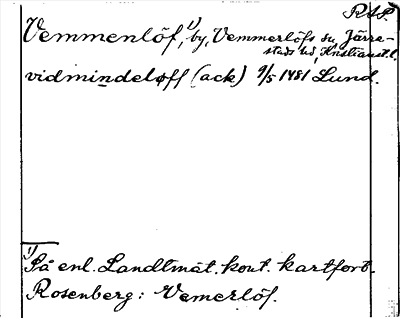 RAP.
Vemmenlöf,¹⁾ by, Vemmerlöfs sn, Järre-
stads hd, Kristianst. l.
vidmindeløff (ack) 9/5 1481 Lund.
¹⁾ Så enl. Landtmät. kont. kartfört.
Rosenberg: Vemerlöf.